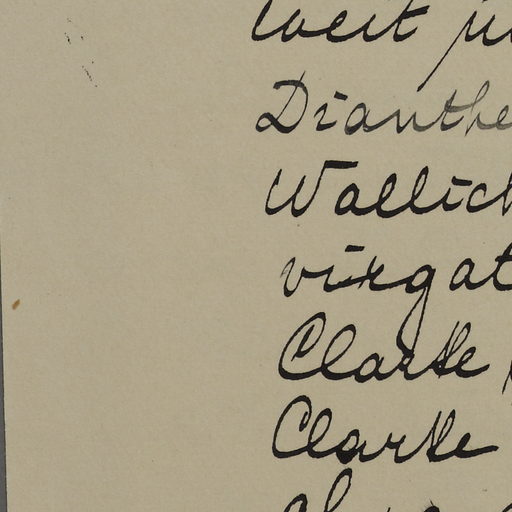 weit
Dianthe
Wallich
virgat
Clarke
Clarke